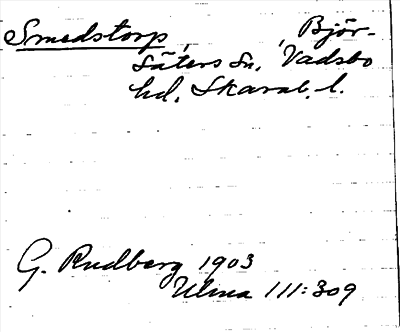 Smedstorp, , Björ-
säters sn, Vadsbo
hd, Skarab. l.
G. Rudberg 1903
Ulma 111:309